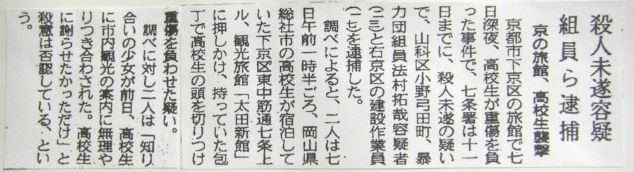 殺人未遂容疑
組員ら逮捕
京の旅館 高校生襲撃
京都市下京区の旅館で七
日深夜、高校生が重傷を負
った事件で、七条署は十一
日までに、殺人未遂の疑い
で、山科区小野弓田町、暴
力団組員法村拓哉容疑者
(二三)と右京区の建設作業員
(一七)を逮捕した。
調べによると、二人は七
日午前一時半ごろ、岡山県
総社市の高校生が宿泊して
いた下京区東中筋通七条上
ル、観光旅館「太田新館」
に押しかけ、持っていた包
丁で高校生の頭を切りつけ
重傷を負わせた疑い。
調べに対し二人は「知り
合いの少女が前日、高校生
に市内観光の案内に無理や
りつき合わされた。高校生
に謝らせたかっただけ」と
殺意は否認している、とい
う。